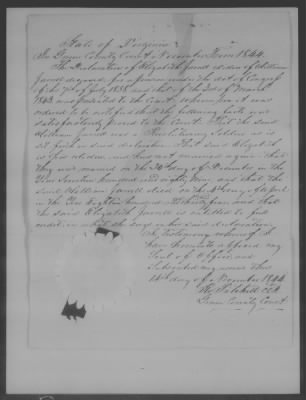 State of Virginia
In Green County Court November Term 1844.
The Declaration of Elizabeth Jarrell widow of William
Jarrell deceased, for a pension under the Act of Congress
of the 7th of July 1838 and that of the 3rd of March
1843 was presented to the Court, whereupon it was
ordered to be certified that the following facts were
satisfactorily proved to the Court. That the said
William Jarrell was a Revolutionary Soldier as is
set forth in said declaration. That said Elizabeth
is his widow, and has not married again. That
they were married on the day of December in the
Year Seventeen hundred and eighty and that the
said William Jarrell died on the day of
in the Year Eighteen hundred & thirty and that
the said Elizabeth Jarrell is entitled to full
credit in what she says in her said declaration.
In testimony whereof I
have hereunto affixed my
Seal of Office, and
Subscribed my name this
14th day of November 1844
Clk
Green County Court